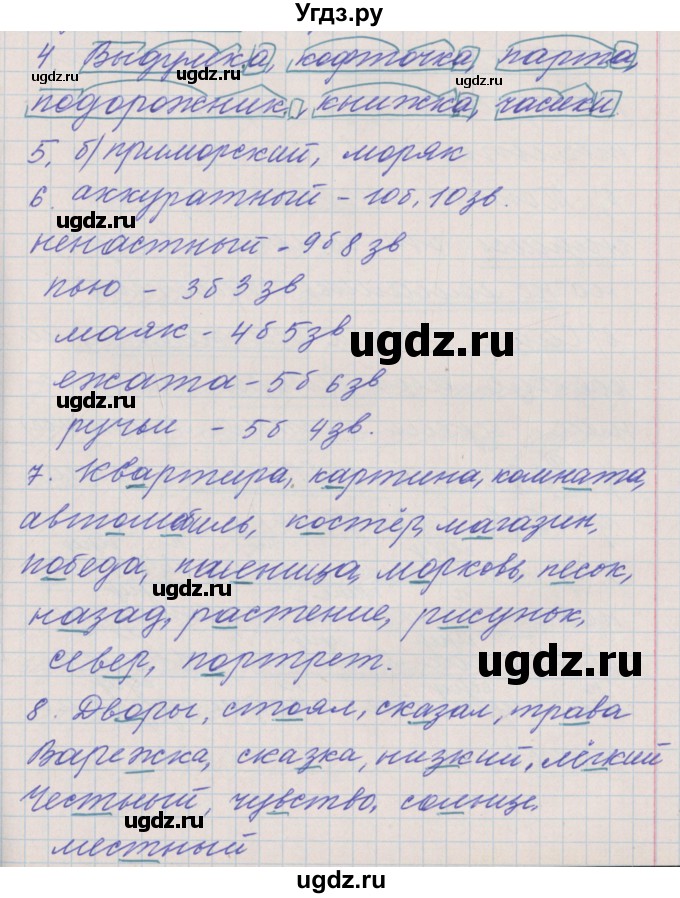 Угдз.ру
4 Выдумка, кофточка, парта,
ugdz.ru
ugdz.ru
подорожник, книжка, часики.
5. б) приморский, моряк
6. аккуратный - 10б, 10зв.
ugdz.ru
ненастный - 9б 8зв
пью - 3б 3зв
маяк - 4б 5зв
ugdz.ru
ежата - 5б 6зв
ugdz.ru
ручьи - 5б 4зв.
7. Квартира, картина, комната,
автомобиль, костёр, магазин,
победа, пшеница, морковь, песок,
ugdz.ru
назад, растение, рисунок,
север, портрет.
ugdz.ru
8. Дворы, стоял, сказал, трава
ugdz.ru
Варежка, сказка, низкий, лёгкий
Честный, чувство, солнце,
ugdz.ru
местный
ugdz.ru